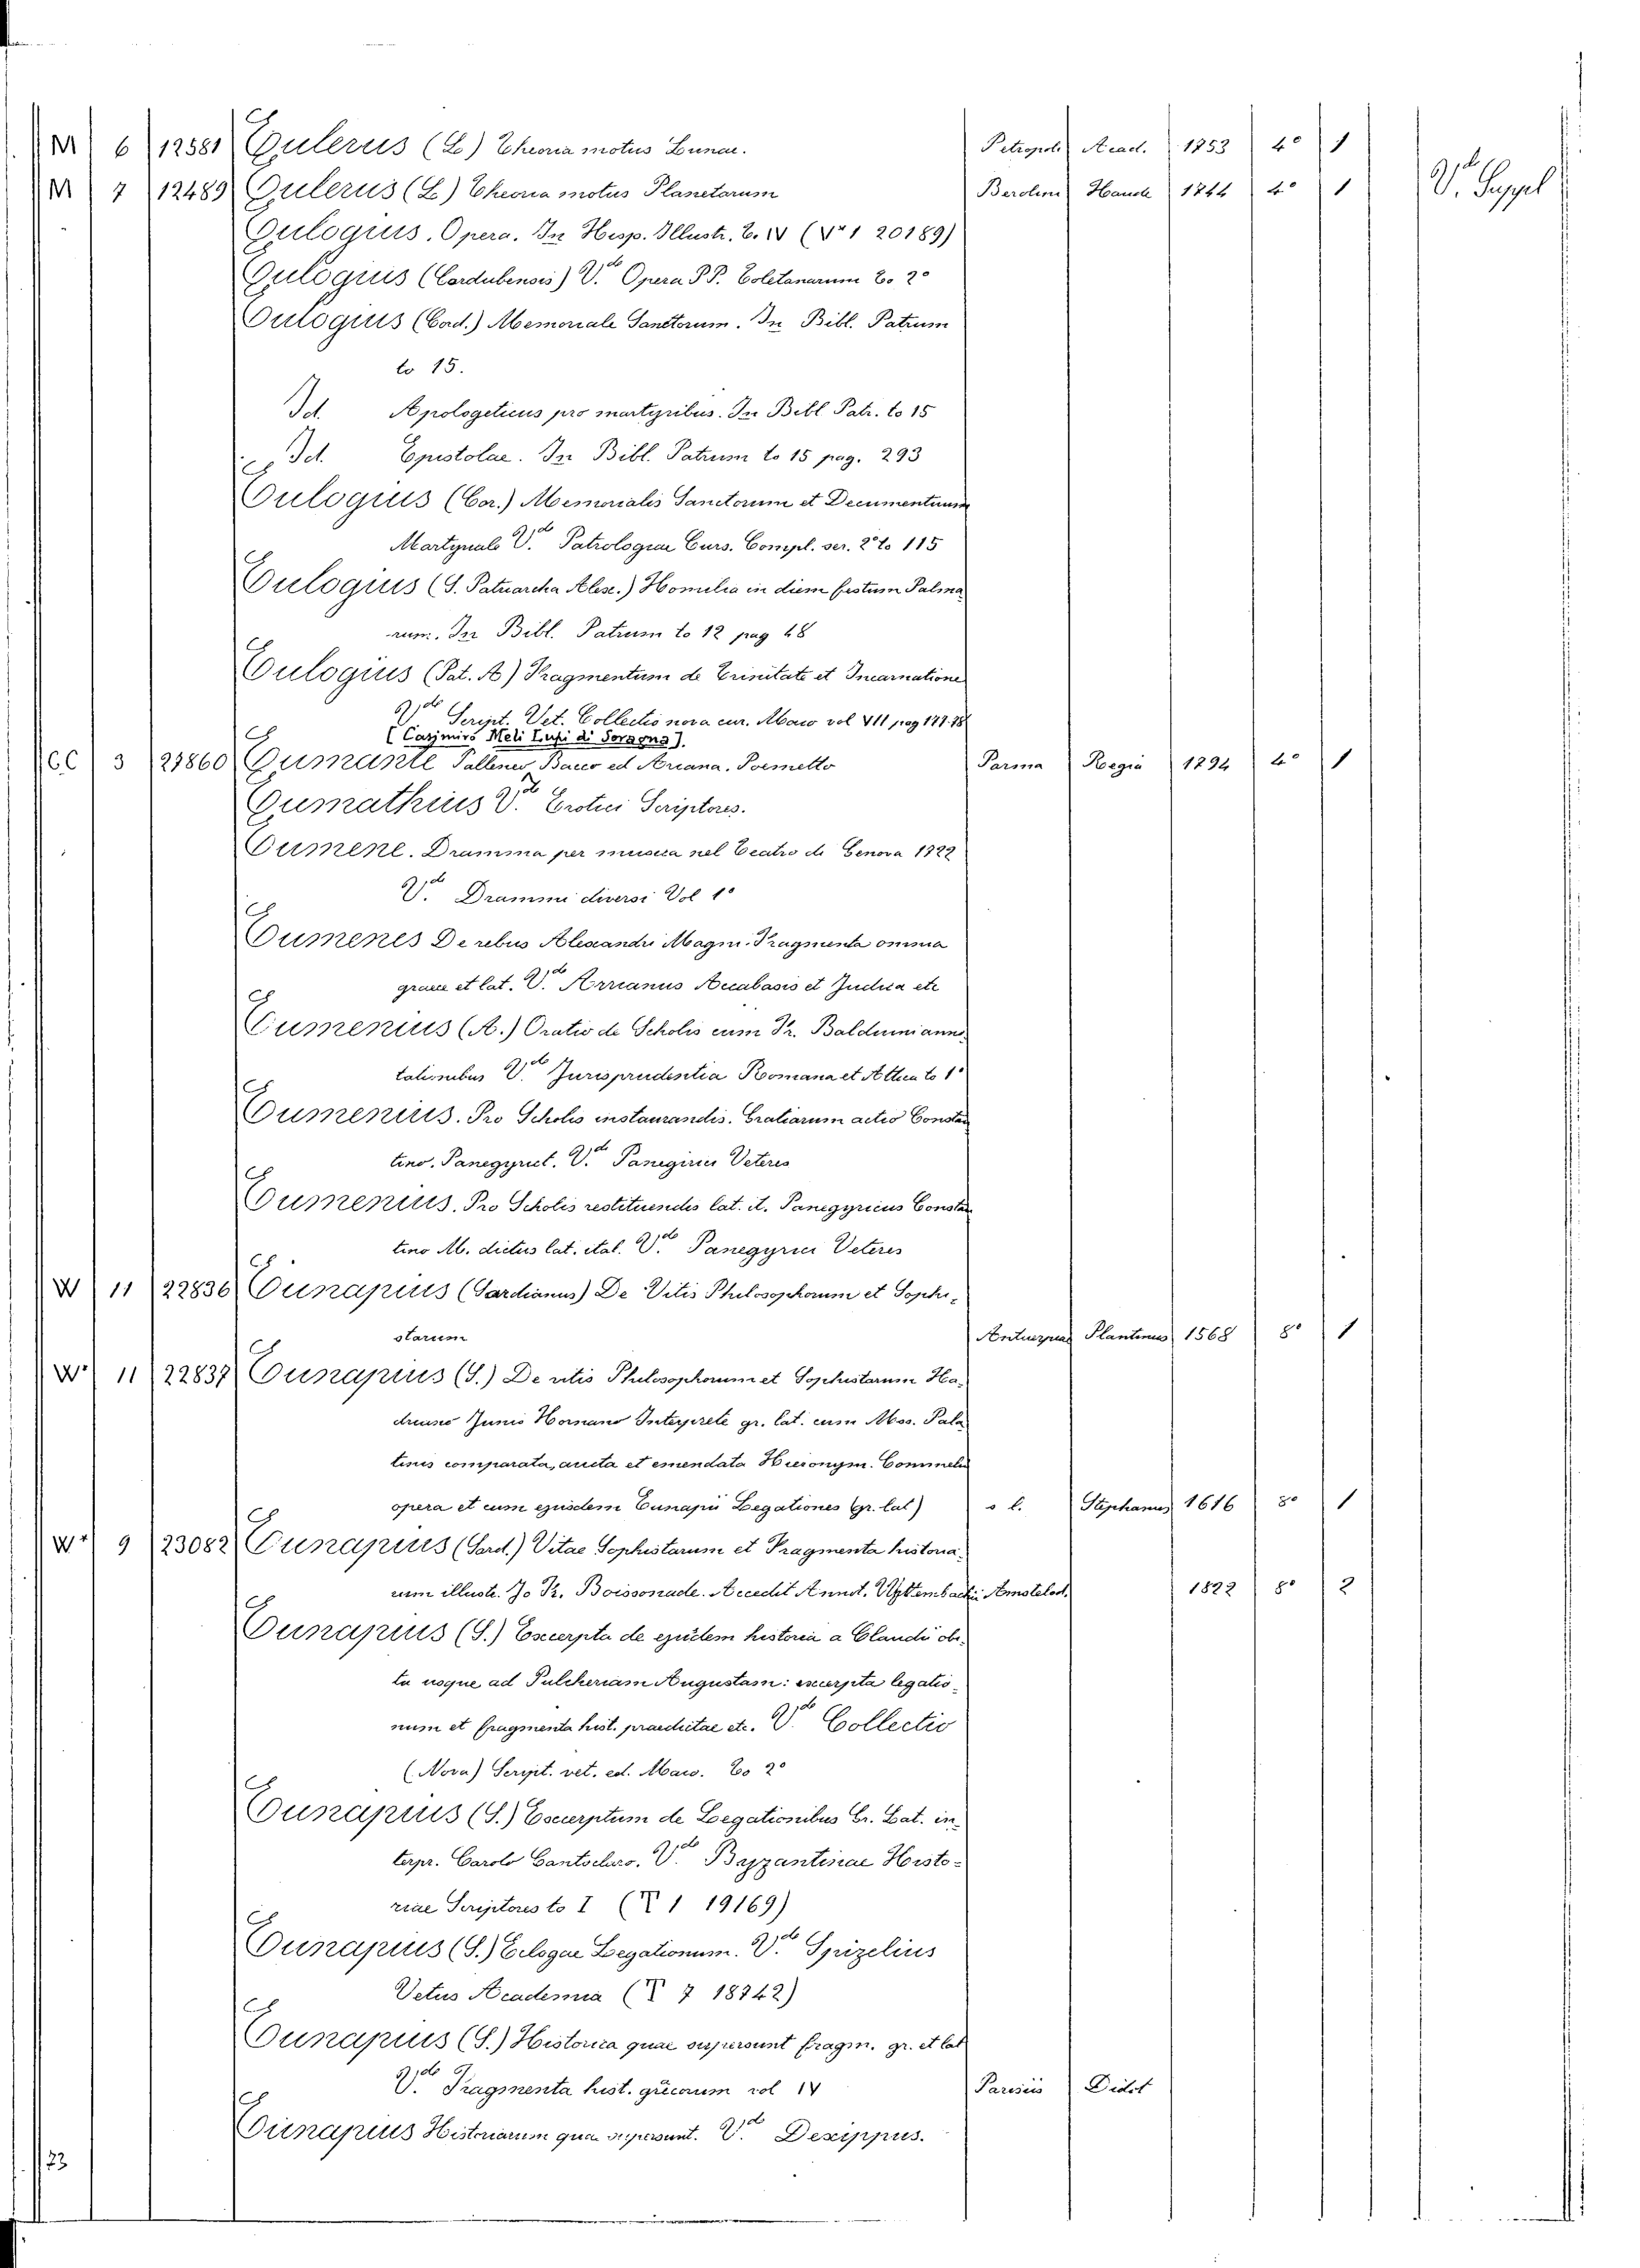 M 6 12581 Eulerus (L.) Theoria motus Lunae. Petropoli Acad. 1753 4° 1
M 7 12489 Eulerus (L.) Theoria motus Planetarum Berolini Haude 1744 4° 1 V. Suppl
Eulogius. Opera. In Hisp. Illustr. t. IV (V 1 20189)
Eulogius (Cordubensis) V.de Opera P P. Toletanarum to 2°
Eulogius (Cord.) Memoriale Sanctorum. In Bibl. Patrum
to 15.
Id. Apologeticus pro martyribus. In Bibl Patr. to 15
Id. Epistolae. In Bibl. Patrum to 15 pag. 293
Eulogius (Cor.) Memorialis Sanctorum et Documentum
Martyriale V.de Patrologiae Curs. Compl. ser. 2ª to 115
Eulogius (S. Patriarcha Alex.) Homilia in diem festum Palma
rum. In Bibl. Patrum to 12 pag 48
Eulogius (Pat. A) Fragmentum de Trinitate et Incarnatione
V.de Script. Vet. Collectio nova cur. Maio vol VII pag 177.78
(Casimiro Meli Lupi di Soragna).
CC 3 27860 Eumante Palleneo, Bacco ed Ariana. Poemetto Parma Regia 1794 4° 1
Eumathius V.de Erotici Scriptores.
Eumene. Dramma per musica nel Teatro di Genova 1822
V.de Drammi diversi Vol 1°
Eumenes De rebus Alexandri Magni. Fragmenta omnia
graece et lat. V.de Arrianus Anabasis et Indica etc
Eumenius (A.) Oratio de Scholis cum Fr. Balduini anno
tationibus V.de Jurisprudentia Romana et Attica to 1°
Eumenius. Pro Scholis instaurandis. Gratiarum actio Constan
tino. Panegyrict. V.de Panegirici Veteres
Eumenius. Pro Scholis restituendis lat. it. Panegyricus Constan
tino M. dictus lat. ital. V.de Panegyrici Veteres
W 11 22836 Eunapius (Sardianus) De Vitis Philosophorum et Sophi-
starum Antuerpiae Plantinus 1568 8° 1
W 11 22837 Eunapius (S.) De vitis Philosophorum et Sophistarum Ha-
driano Junio Hornano Interprete gr. lat. cum Mss. Pala
tinis comparata, aucta et emendata Hieronym. Commelin
opera et cum ejusdem Eunapii Legationes (gr. lat) s l. Stephanus 1616 8° 1
W 9 23082 Eunapius (Sard.) Vitae Sophistarum et Fragmenta historia-
rum illustr. Jo Fr. Boissonade. Accedit Annot. Wyttembachii Amstelod. 1822 8° 2
Eunapius (S.) Excerpta de ejusdem historia a Claudi obi-
tu usque ad Pulcheriam Augustam: excerpta legatio-
num et fragmenta hist. praedictae etc. V.de Collectio
(Nova) Script. vet. ed. Maio. To 2°
Eunapius (S.) Excerptum de Legationibus Gr. Lat. in-
terpr. Carolo Cantoclaro. V.de Byzantinae Histo-
riae Scriptores to I (T 1 19169)
Eunapius (S.) Eclogae Legationum. V.de Spizelius
Vetus Academia (T 7 18742)
Eunapius (S.) Historica quae supersunt fragm. gr. et lat
V.de Fragmenta hist. grecorum vol IV Parisiis Didot
Eunapius Historiarum quae supersunt. V.de Dexippus.
23